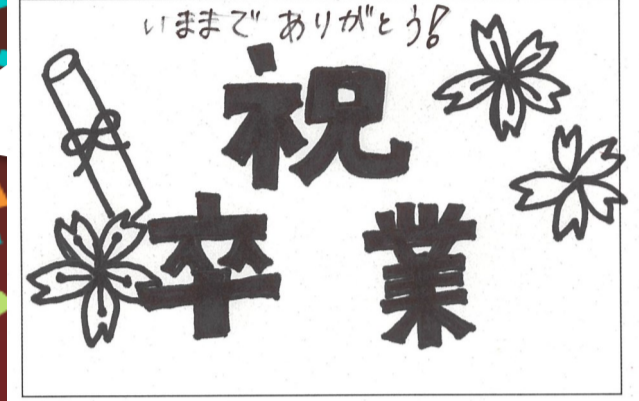 いままで ありがとう!
祝
卒業